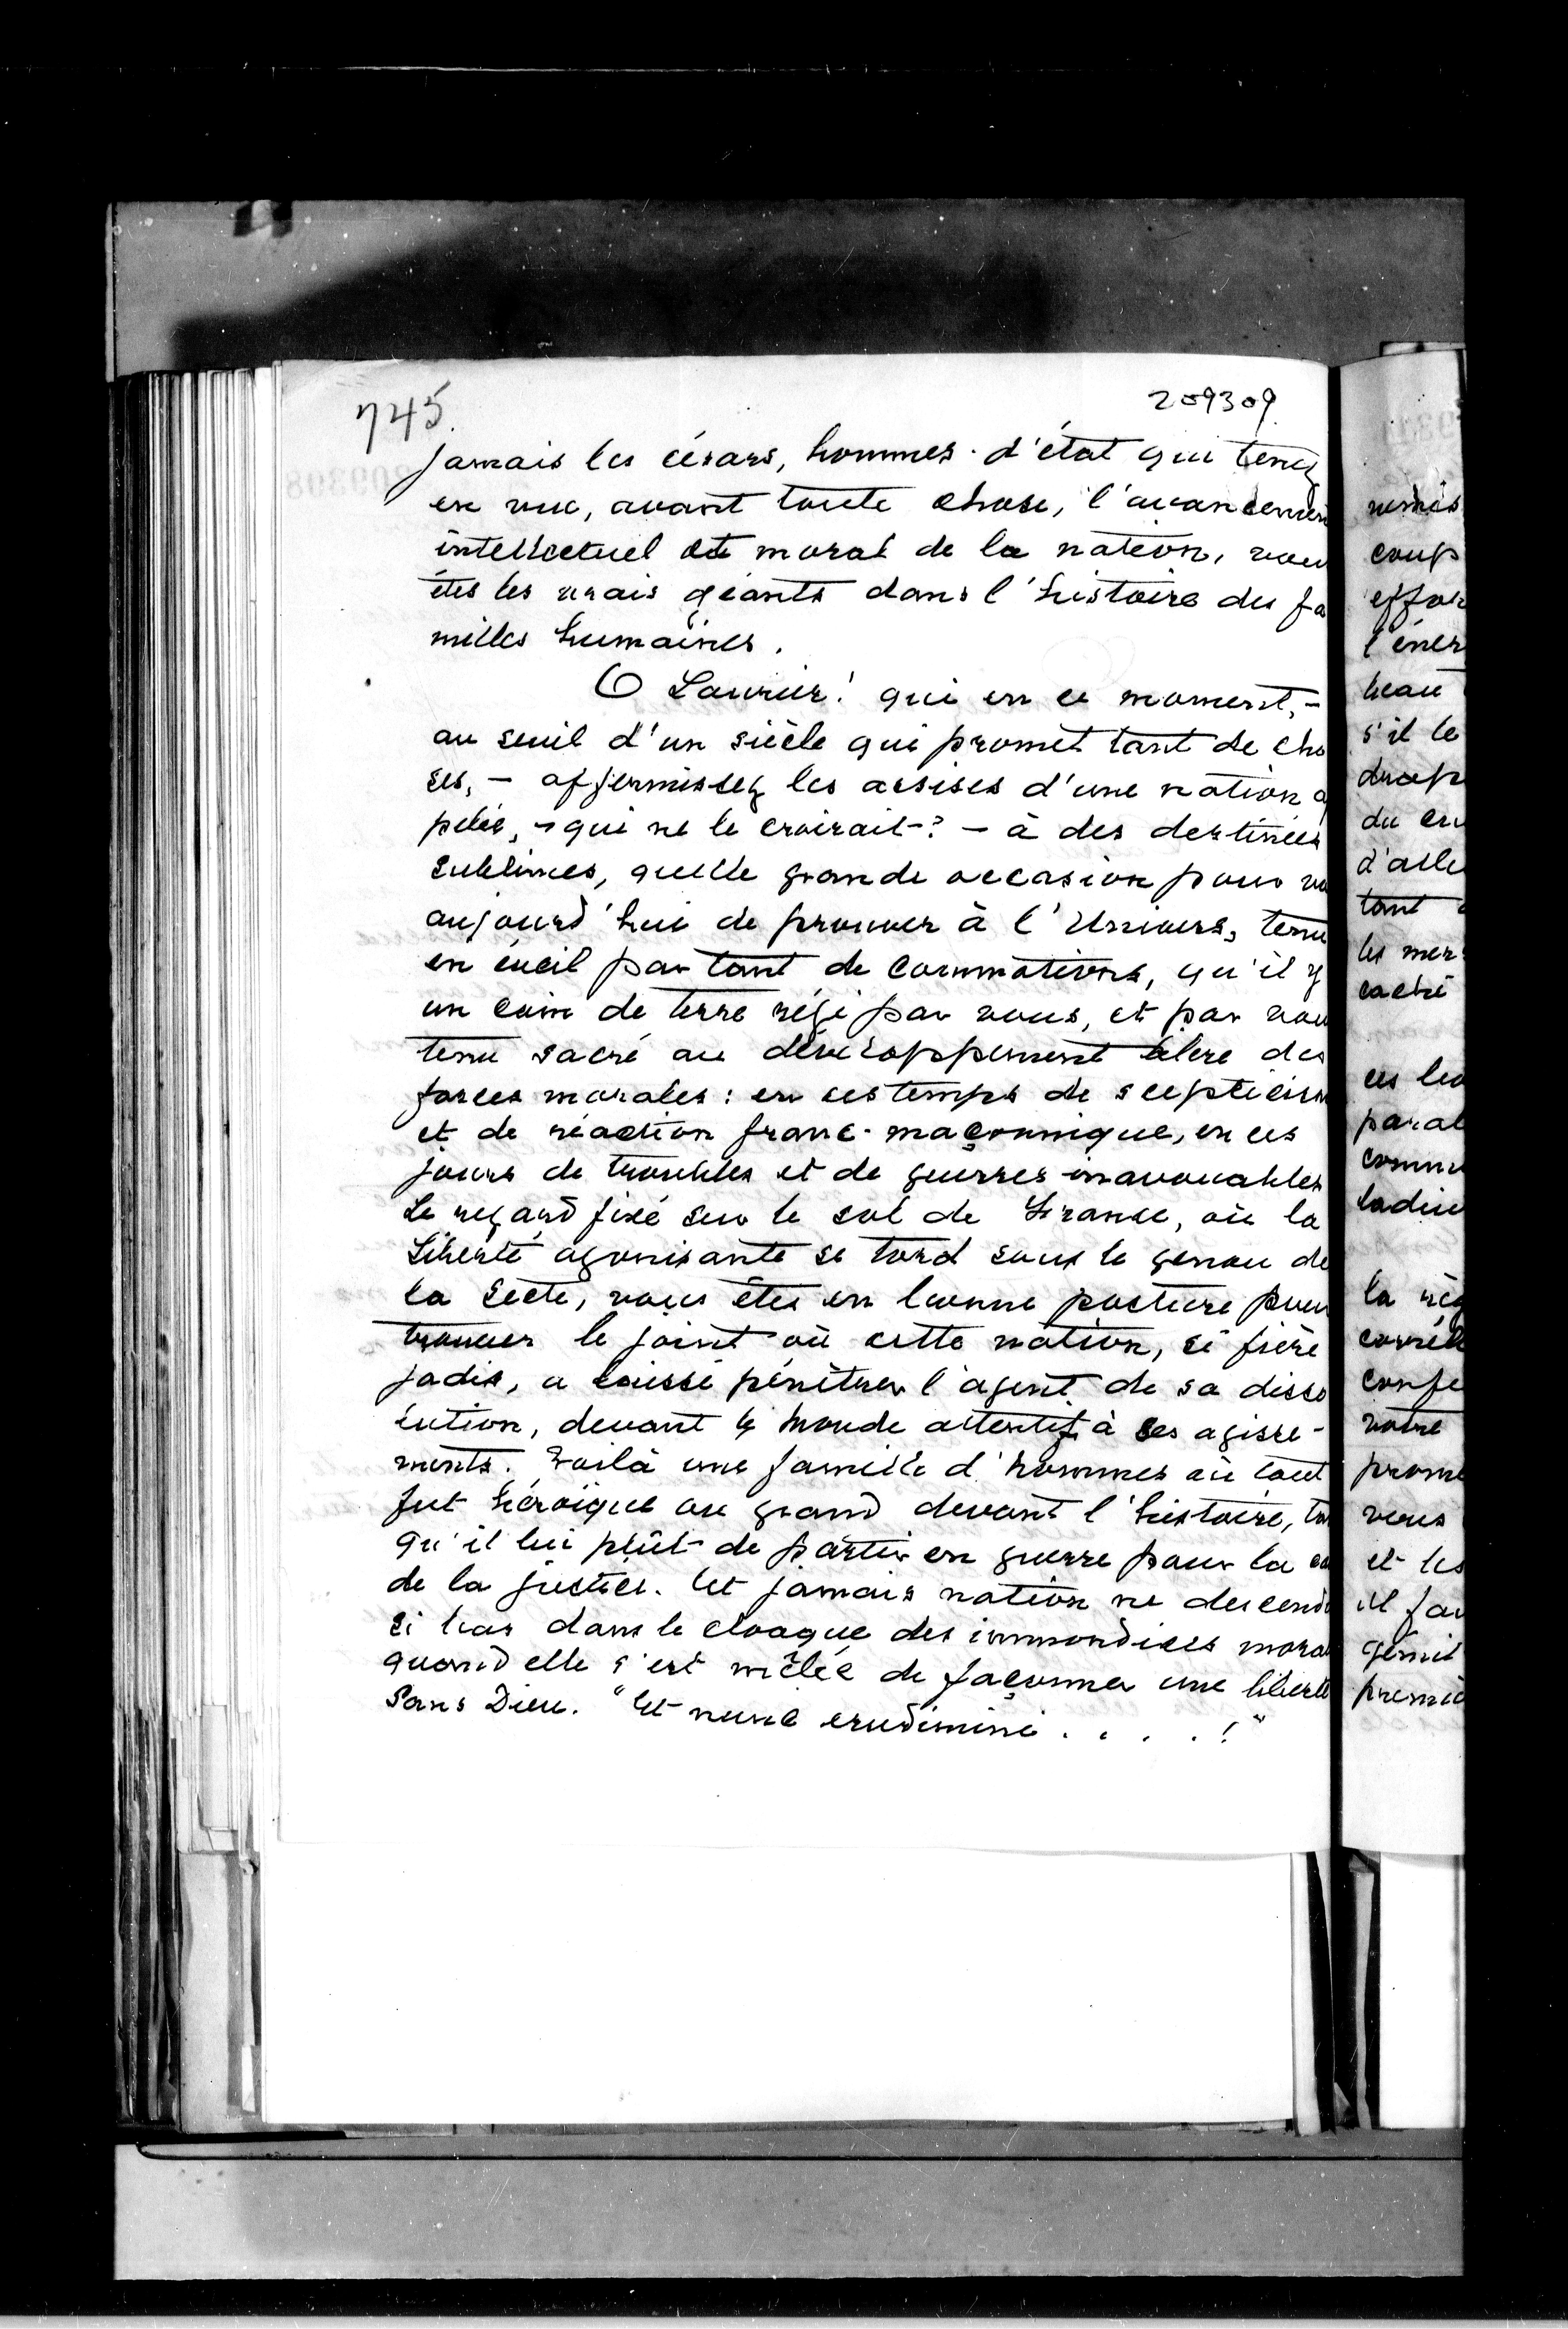 745.
209309
jamais les césars, hommes d'état qui tenez
en vue, avant toute chose, l'avancemen
intellectuel et moral de la nation, vou
êtes les vrais géants dans l'histoire des fa
milles humaines.
O Laurier! qui en ce moment, -
au seuil d'un siècle qui promet tant de cho
ses, - affermissez les assises d'une nation a
pelée, - qui ne le croirait? - à des destinées
sublimes, quelle grande occasion pour vo
aujourd'hui de prouver à l'Univers, tenu
en éveil par tant de commotions, qu'il y
un coin de terre régi par vous, et par vou
tenu sacré au développement libre des
forces morales: en ces temps de scepticism
et de réaction franc-maçonnique, en ces
jours de troubles et de guerres inavouables
Le regard fixé sur le sol de France, où la
Liberté agonisante se tord sous le genou de
la Secte, vous êtes en bonne posture pour
trouver le joint où cette nation, si fière
jadis, a laissé pénétrer l'agent de sa disso
lution, devant le monde attentif à ses agisse-
ments. Voilà une famille d'hommes où tout
fut héroïque ou grand devant l'histoire, ta
qu'il lui plût de partir en guerre pour la ca
de la justice. Et jamais nation ne descendi
si bas dans le cloaque des immondices moral
quand elle s'est mêlée de façonner une liberté
sans Dieu. "Et nunc erudimini . . . . !"
coup
effor
l'éner
beau
s'il le
drap
du cru
d'aile
tant
les mer
caché
ces le
paral
comm
ladie
la règ
corrél
confe
votre
prome
vous
et les
il fau
gémit
premiè